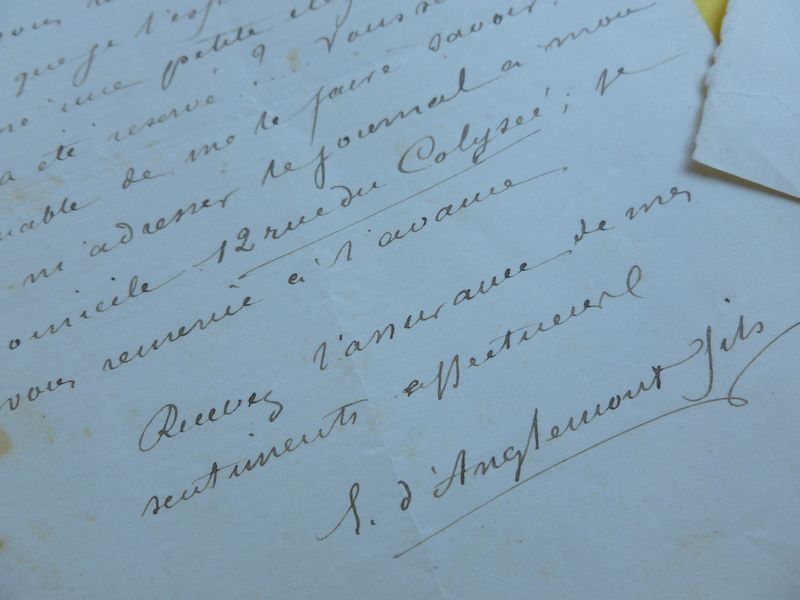 que je
né une petite
a été réservé ? .... Vous se
uable de me le faire savoir,
m'adresser le journal à mon
omicile 12 rue du Colyseé ; je
vous remercie à l'avance
Recevez l'assurance de mes
sentiments affectueux
E. d'Anglemont fils